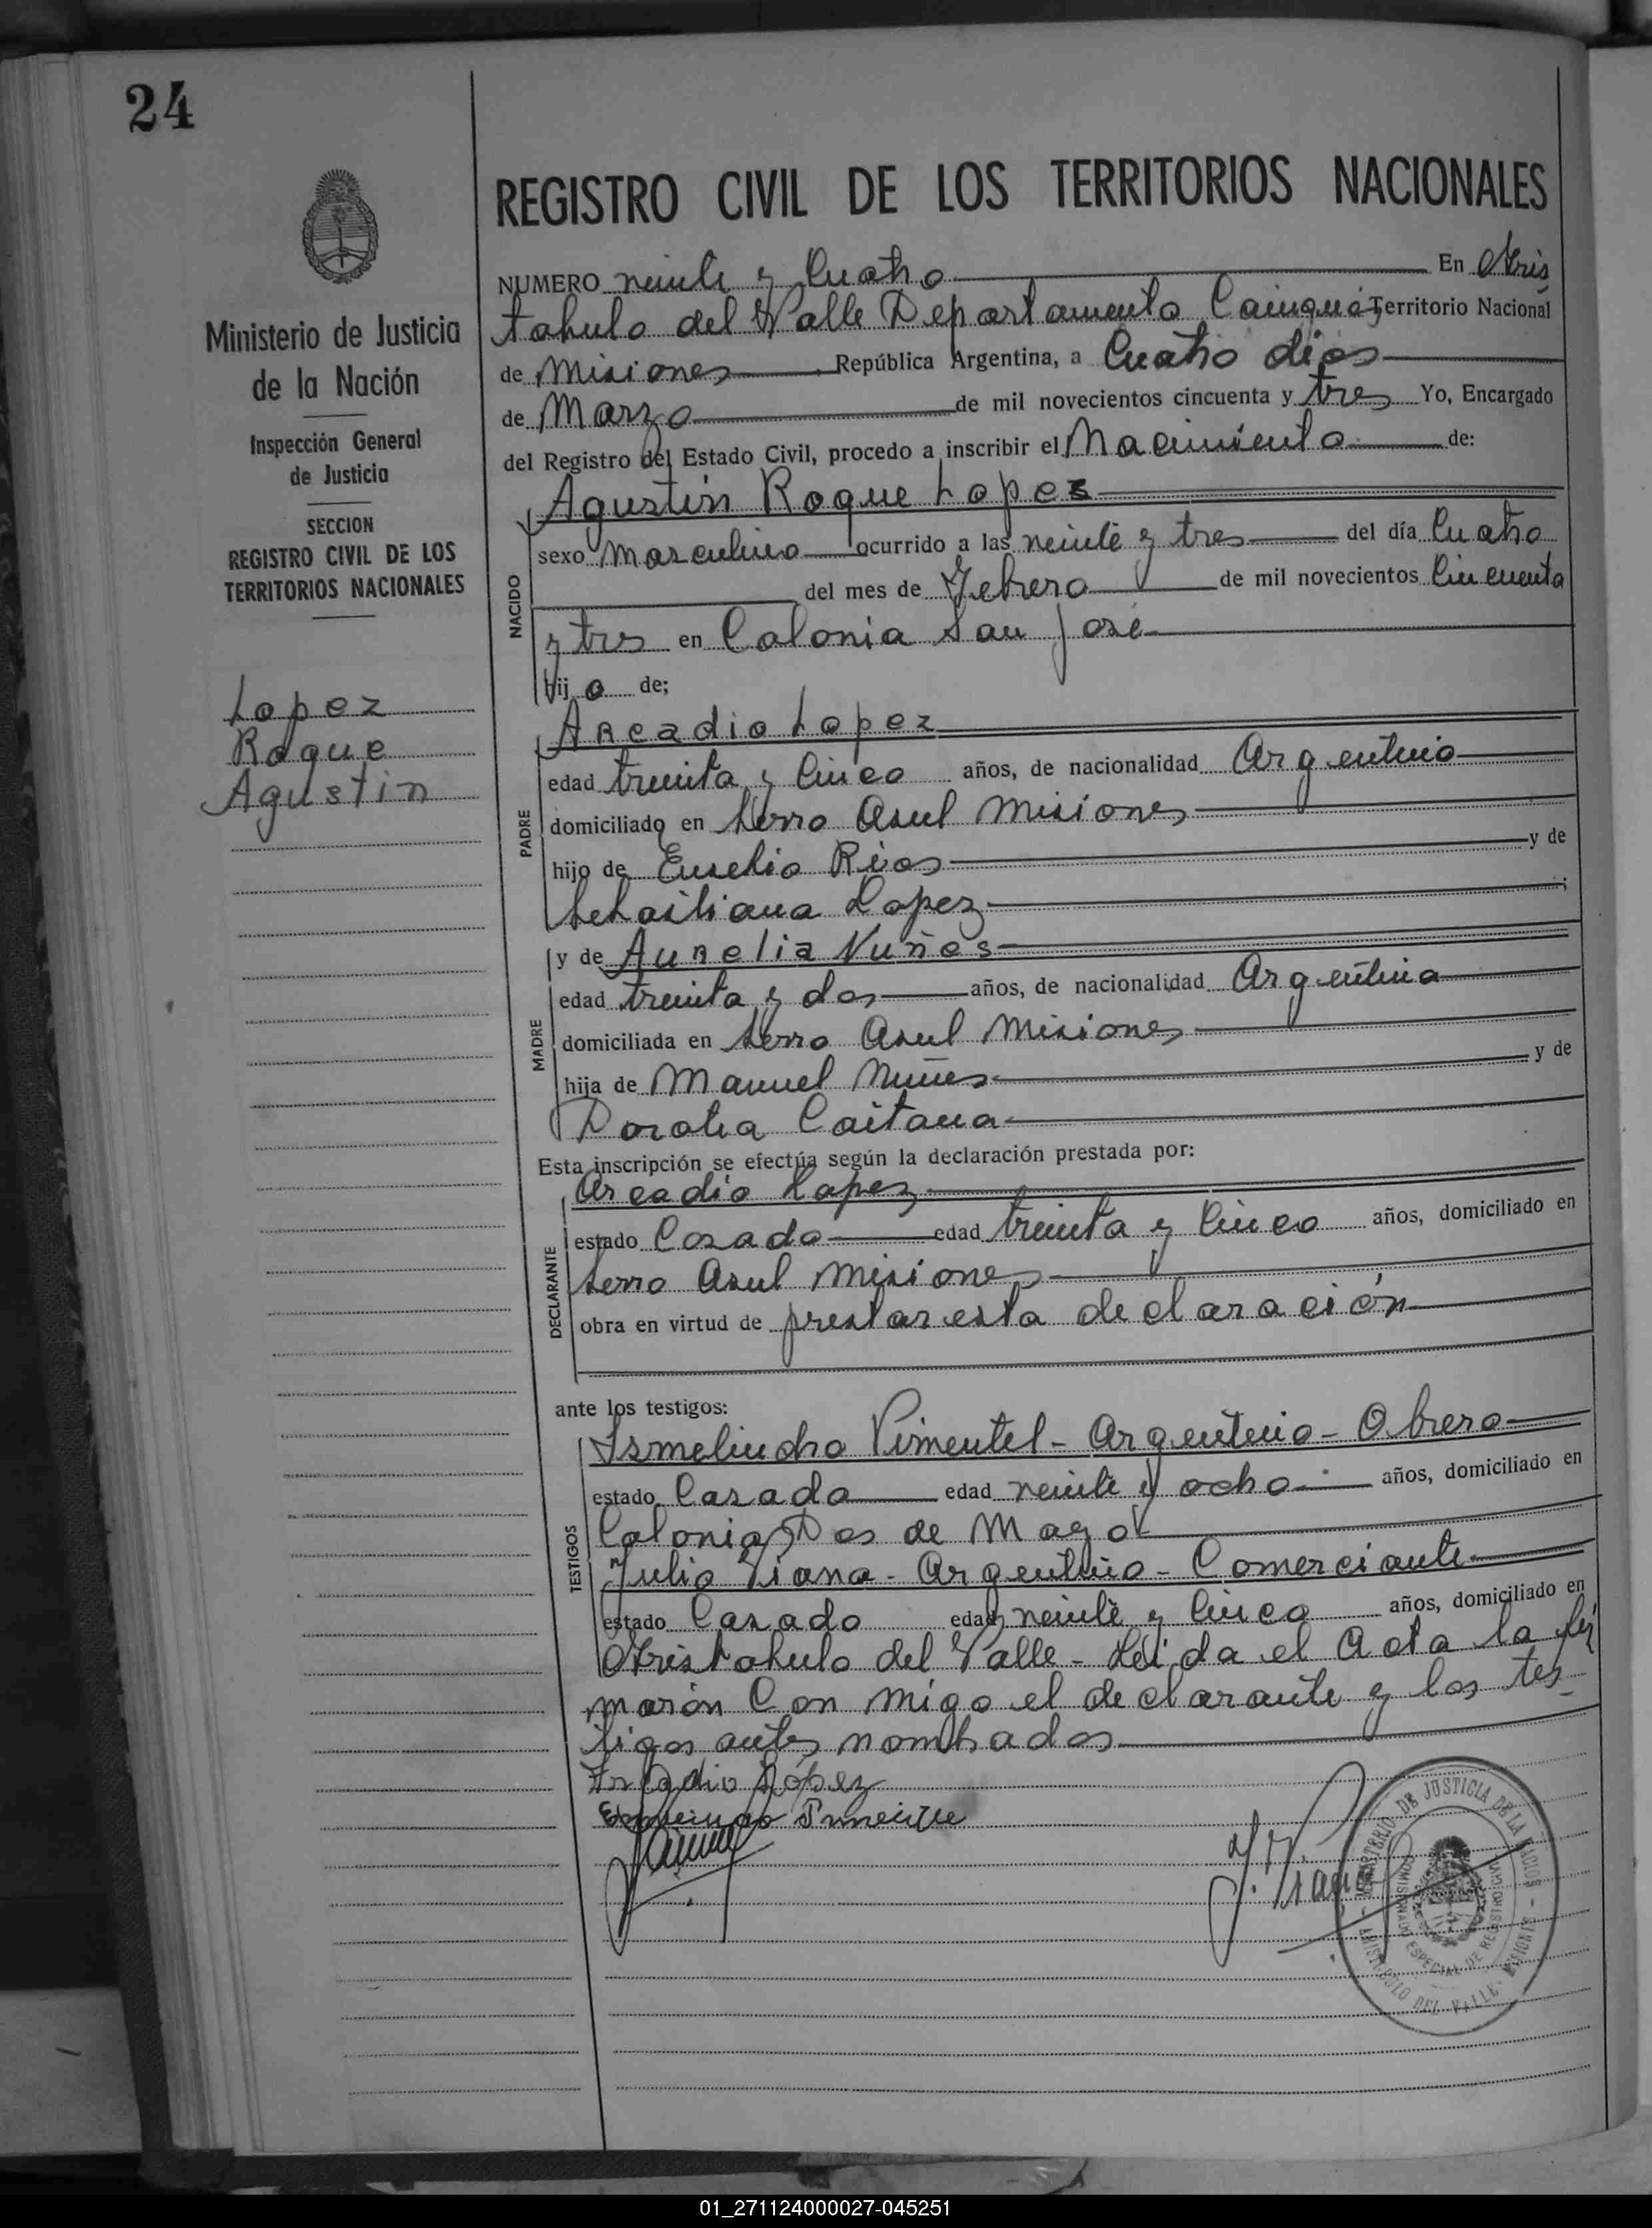 24
REGISTRO CIVIL DE LOS TERRITORIOS NACIONALES
Ministerio de Justicia
de la Nación
Inspección General
de Justicia
SECCION
REGISTRO CIVIL DE LOS
TERRITORIOS NACIONALES
Lopez
Roque
Agustin
NUMERO veinte y Cuatro En Aris
tobulo del Valle Departamento Cainguás Territorio Nacional
de Misiones República Argentina, a Cuatro dias
de Marzo de mil novecientos cincuenta y tres Yo, Encargado
del Registro del Estado Civil, procedo a inscribir el Nacimiento de:
Agustin Roque Lopez
NACIDO
sexo Masculino ocurrido a las veinte y tres del día Cuatro
del mes de Febrero de mil novecientos Cincuenta
y tres en Colonia San José
hij o de;
PADRE
Arcadio Lopez
edad treinta y Cinco años, de nacionalidad Argentino
domiciliado en Serro Asul Misiones
hijo de Eusebio Rios y de
Sebastiana Lopez ;
MADRE
y de Aurelia Nuñes
edad treinta y dos años, de nacionalidad Argentina
domiciliada en Serro Asul Misiones
hija de Manuel Nuñes y de
Dorotea Caitana
Esta inscripción se efectúa según la declaración prestada por:
DECLARANTE
Arcadio Lopez
estado Casado edad treinta y Cinco años, domiciliado en
Serro Asul Misiones
obra en virtud de prestar esta declaración
ante los testigos:
TESTIGOS
Pimentel - Argentino - Obrero
estado Casado edad veinte y ocho años, domiciliado en
Colonia Dos de Mayo
Julio Viana - Argentino - Comerciante
estado Casado edad veinte y Cinco años, domiciliado en
Aristobulo del Valle - Leida el Acta la fir
marón Con migo el declarante y los tes
tigos antes nombrados
Arcadio López
J. Viana
MINISTERIO DE JUSTICIA DE LA NACION - ARISTOBULO DEL VALLE - MISIONES -
COMISIONADO ESPECIAL DE REGISTRO CIVIL
01_271124000027-045251